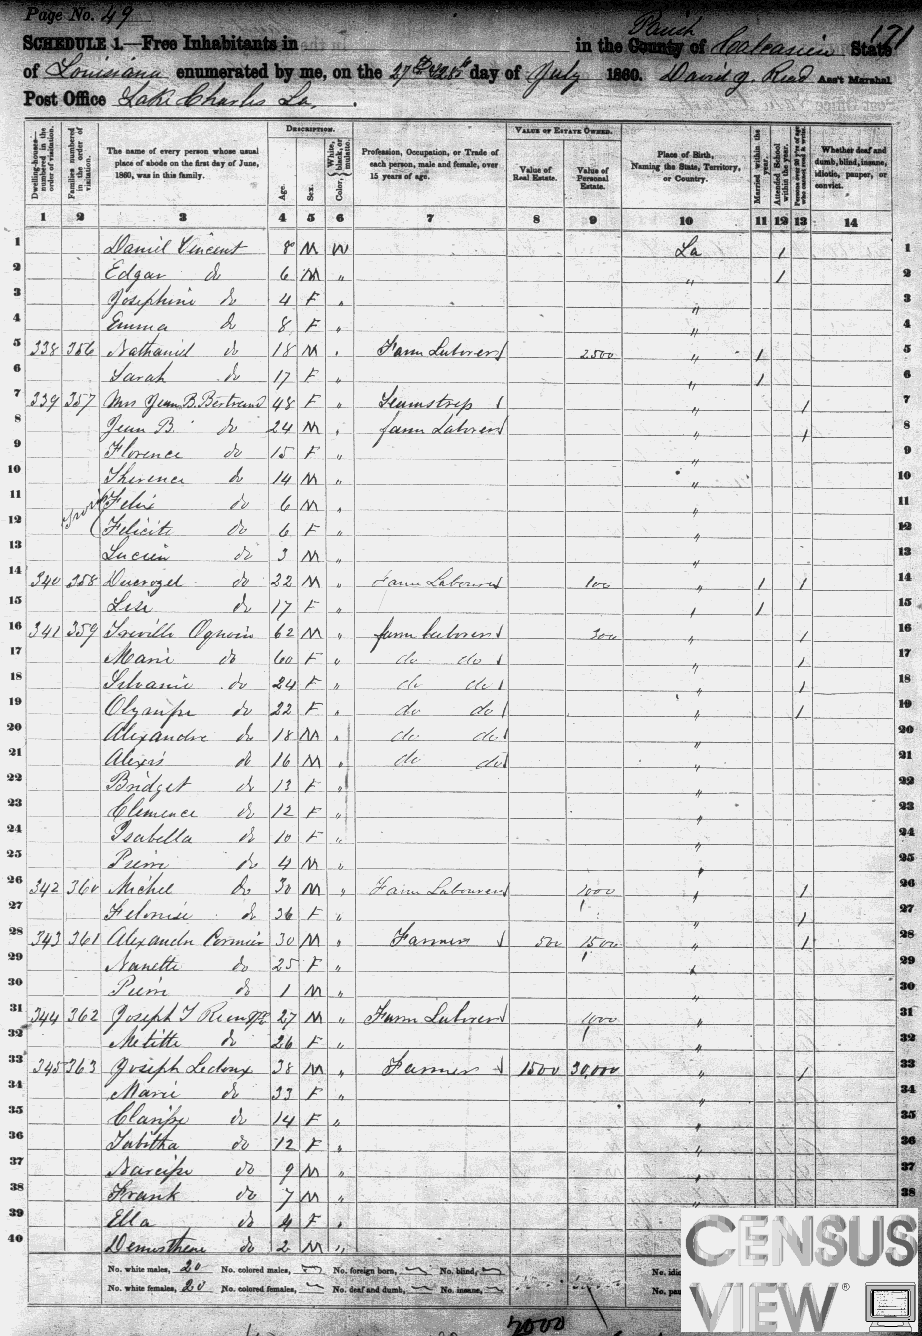 Page No. 49
171
SCHEDULE 1.—Free Inhabitants in in the County Parish of Calcasieu State
of Louisiana enumerated by me, on the 27th & 28th day of July 1860. David J. Read Ass't Marshal.
Post Office Lake Charles La.
Dwelling-houses numbered in the order of visitation.
Families numbered in the order of visitation.
The name of every person whose usual place of abode on the first day of June, 1860, was in this family.
DESCRIPTION.
Age.
Sex.
Color, White, black, or mulatto.
Profession, Occupation, or Trade of each person, male and female, over 15 years of age.
VALUE OF ESTATE OWNED.
Value of Real Estate.
Value of Personal Estate.
Place of Birth, Naming the State, Territory, or Country.
Married within the year.
Attended School within the year.
Persons over 20 y'rs of age who cannot read & write.
Whether deaf and dumb, blind, insane, idiotic, pauper, or convict.
1 2 3 4 5 6 7 8 9 10 11 12 13 14
1 Daniel Vincent 8 M W La 1 1
2 Edgar do 6 M " " 1 2
3 Josephine do 4 F " " 3
4 Emma do 8 F " " 4
5 338 356 Nathaniel do 18 M " Farm Laborer 2500 " 1 5
6 Sarah do 17 F " " 1 6
7 339 357 Mrs Jean B. Bertrand 48 F " Seamstress " 1 7
8 Jean B. do 24 M " farm Laborer " 1 8
9 Florence do 15 F " " 9
10 Therence do 14 M " " 10
11 Felix do 6 M " " 11
12 Felicite do 6 F " " 12
13 Lucien do 3 M " " 13
14 340 358 Ducrozel do 22 M " Farm Labourer 100 " 1 1 14
15 Lise do 17 F " " 1 15
16 341 359 Treville 62 M " farm laborer 300 " 1 16
17 Marie do 60 F " do do " 1 17
18 Silvanie do 24 F " do do " 1 18
19 Olympe do 22 F " do do " 1 19
20 Alexandre do 18 M " do do " 20
21 Alexis do 16 M " do do " 21
22 Bridget do 13 F " " 22
23 Clemence do 12 F " " 23
24 Isabella do 10 F " " 24
25 Pierre do 4 M " " 25
26 342 360 Michel do 30 M " Farm Labourer 1000 " 1 26
27 Felonise do 36 F " " 1 27
28 343 361 Alexandre Cormier 30 M " Farmer 500 1500 " 1 28
29 Nanette do 25 F " " 29
30 Pierre do 1 M " " 30
31 344 362 Joseph T 27 M " Farm Laborer 1000 " 31
32 Metitte do 26 F " " 32
33 345 363 Joseph Ledoux 38 M " Farmer 1500 30,000 " 1 33
34 Marie do 33 F " " 34
35 Clarisse do 14 F " " 35
36 Tabitha do 12 F " " 36
37 Narcisse do 9 M " " 37
38 Frank do 7 M " " 38
39 Ella do 4 F "
40 Demosthene do 2 M "
No. white males, 20 No. colored males, No. foreign born, No. blind,
No. white females, 20 No. colored females, No. deaf and dumb, No. insane,
2000
CENSUS
VIEW®